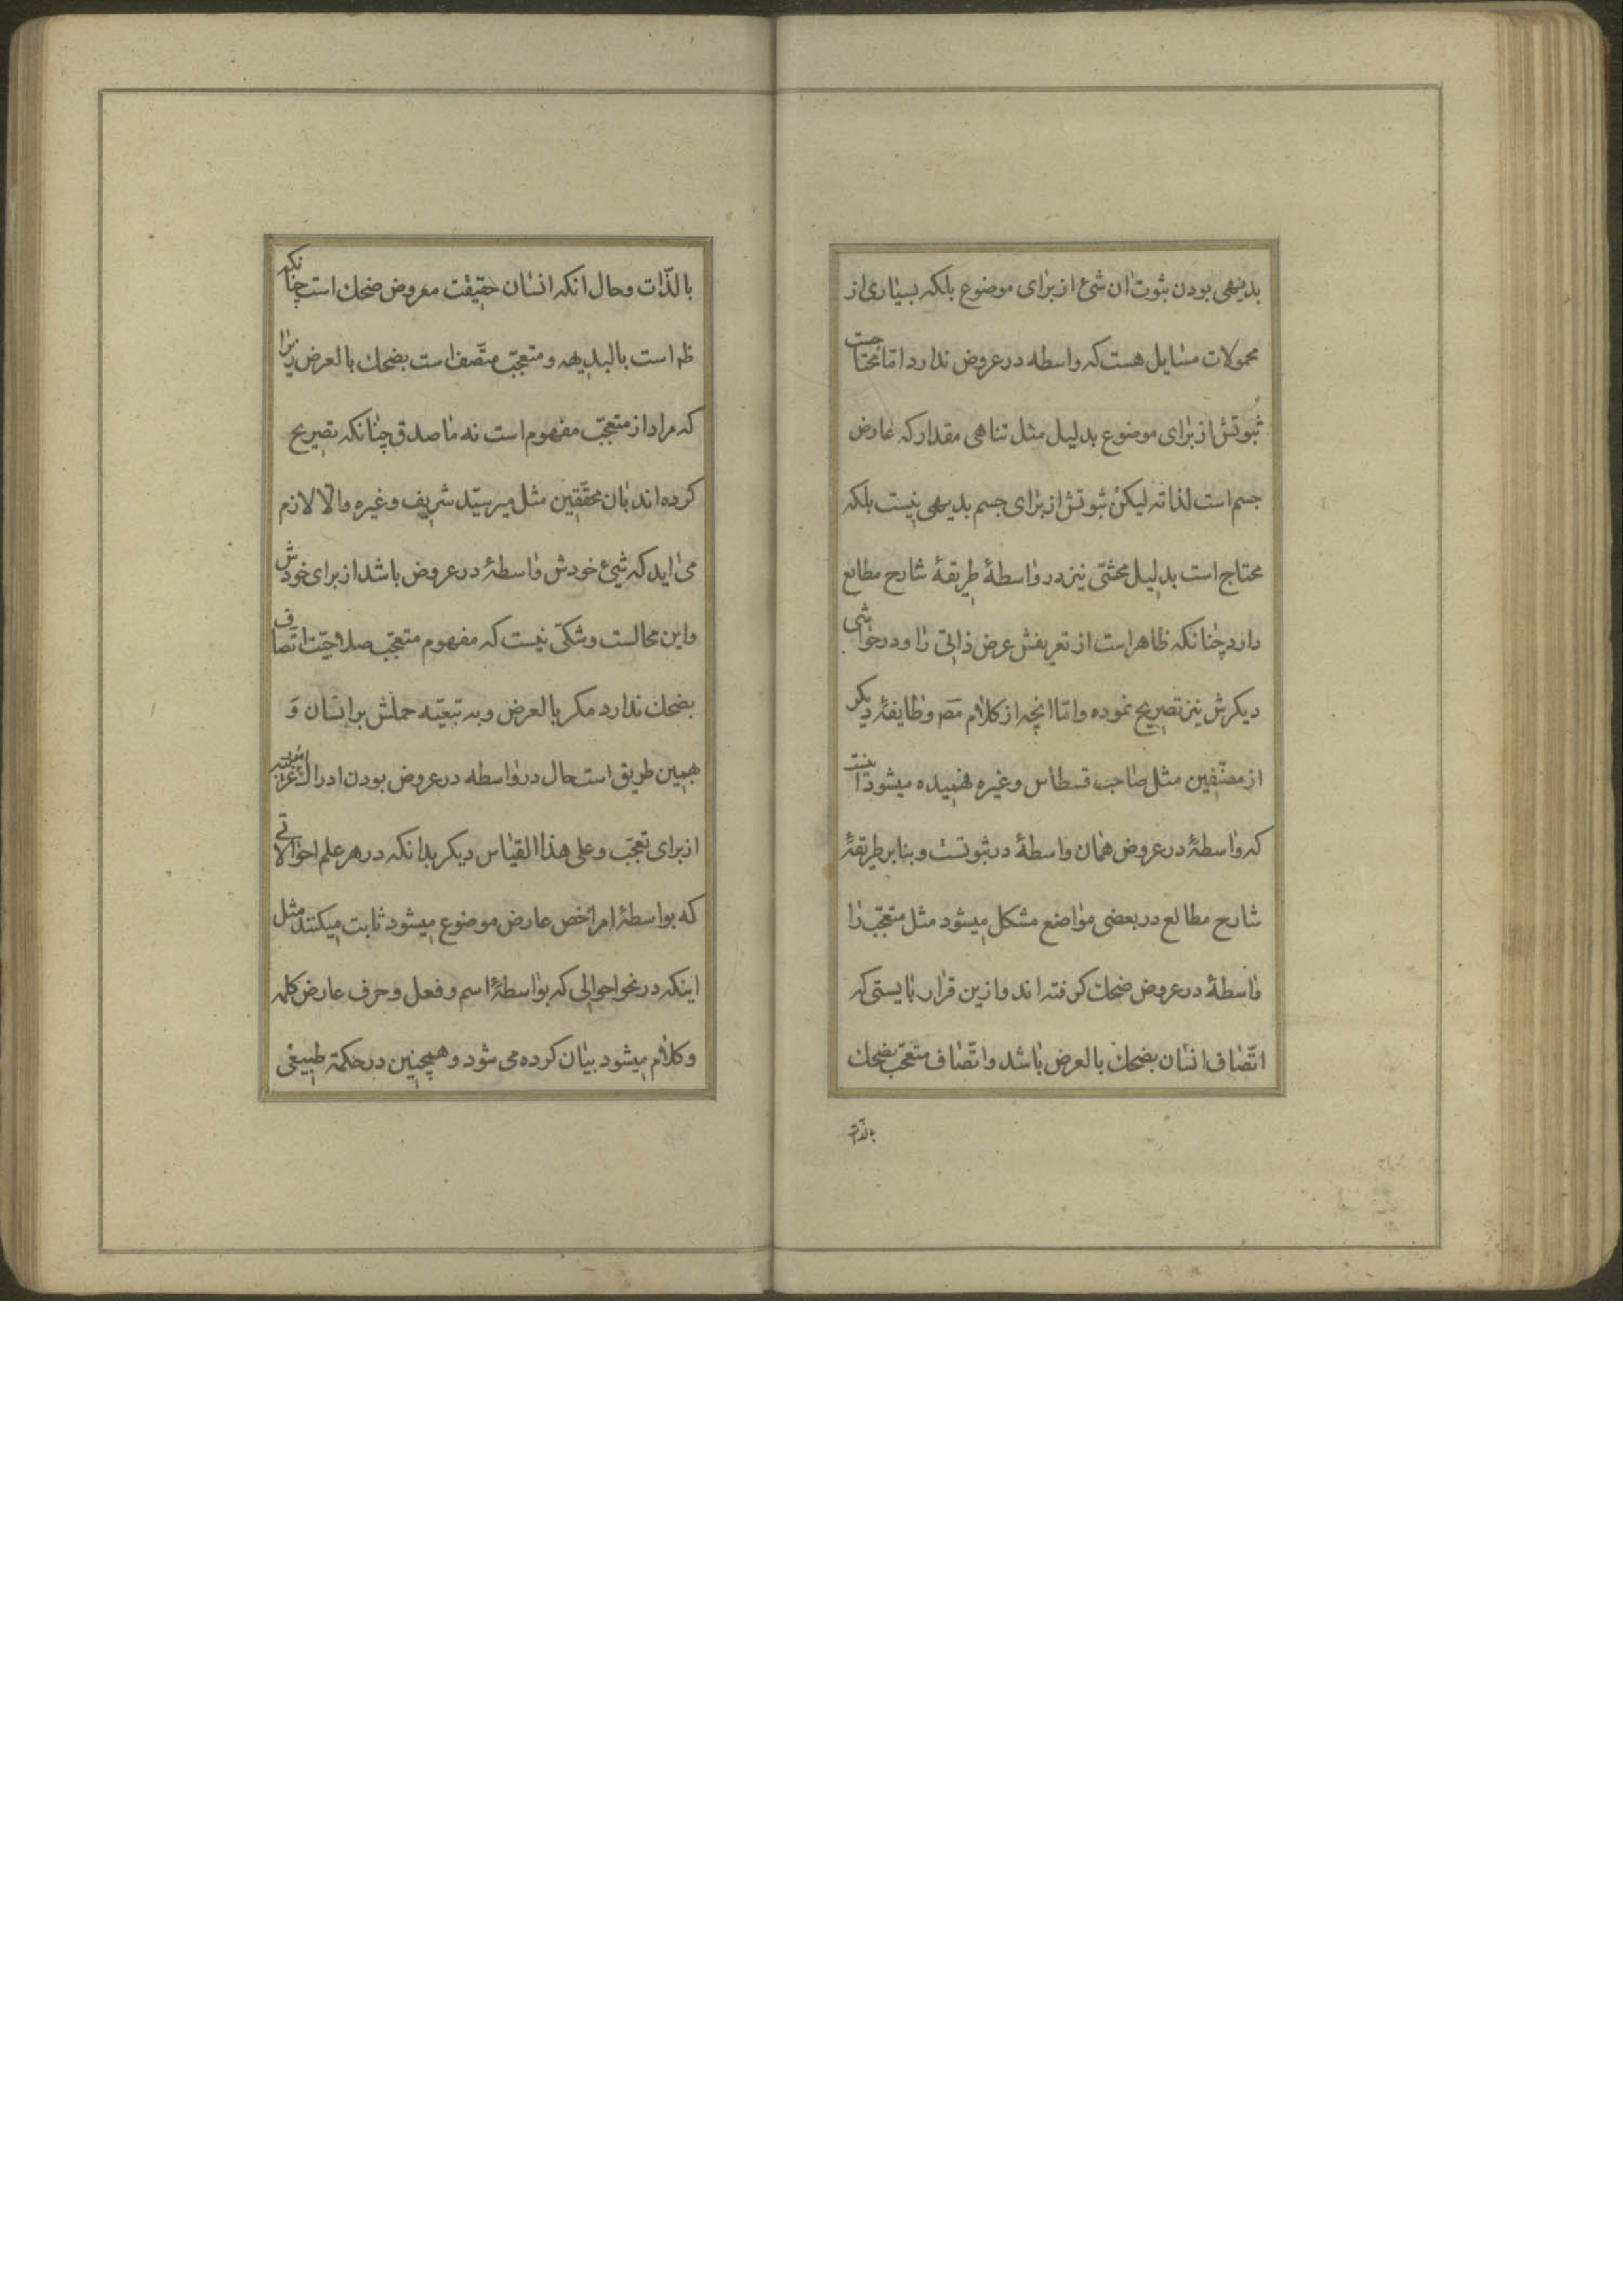 بدیهی بودن ثبوت ان شئ از برای موضوع بلکه بسیاری از
محمولات مسایل هست که واسطه در عروض ندارد امّا محتاجست
ثبوتش از برای موضوع بدلیل مثل تناهی مقدار که عارض
جسم است لذاته لیکن ثبوتش از برای جسم بدیهی نیست بلکه
محتاج است بدلیل محشّی نیز در واسطهٔ طریقهٔ شارح مطالع
دارد چنانکه ظاهر است از تعریفش عرض ذاتی را و در حواشی
دیکرش نیز تصریح نموده و امّا انچه از کلام مصَ و طایفهٔ دیکر
از مصنّفین مثل صاحب قسطاس و غیره فهمیده میشود اینست
که واسطهٔ در عروض همان واسطهٔ در ثبوتست و بنابر طریقهٔ
شارح مطالع در بعضی مواضع مشکل میشود مثل متعجّب را
واسطهٔ در عروض ضحك کرفته اند و ازین قرار بایستی که
اتّصاف انسان بضحك بالعرض باشد و اتّصاف متعجّب بضحك
بالذّات
بالذّات و حال انکه انسان حقیقت معروض ضحك است چنانکه
ظَ است بالبدیهه و متعجّب متّصف است بضحك بالعرض زیرا
که مراد از متعجّب مفهوم است نه ماصدق چنانکه تصریح
کرده اند بان محقّقین مثل میر سیّد شریف و غیره والّا لازم
می اید که شیئ خودش واسطهٔ در عروض باشد از برای خودش
و این محالست و شکّی نیست که مفهوم متعجّب صلاحیّت اتّصاف
بضحك ندارد مکر بالعرض و به تبعیّه حملش بر انسان وَ
بهمین طریق است حال در واسطه در عروض بودن ادراك غریبه
از برای تعجّب و علی هذا القیاس دیکر بدانکه در هر علم احوالاتی
که بواسطهٔ امر اخص عارض موضوع میشود ثابت میکنند مثل
اینکه در نحو احوالی که بواسطهٔ اسم و فعل و حرف عارض کلمه
و کلام میشود بیان کرده می شود و همچنین در حکمة طبیعی